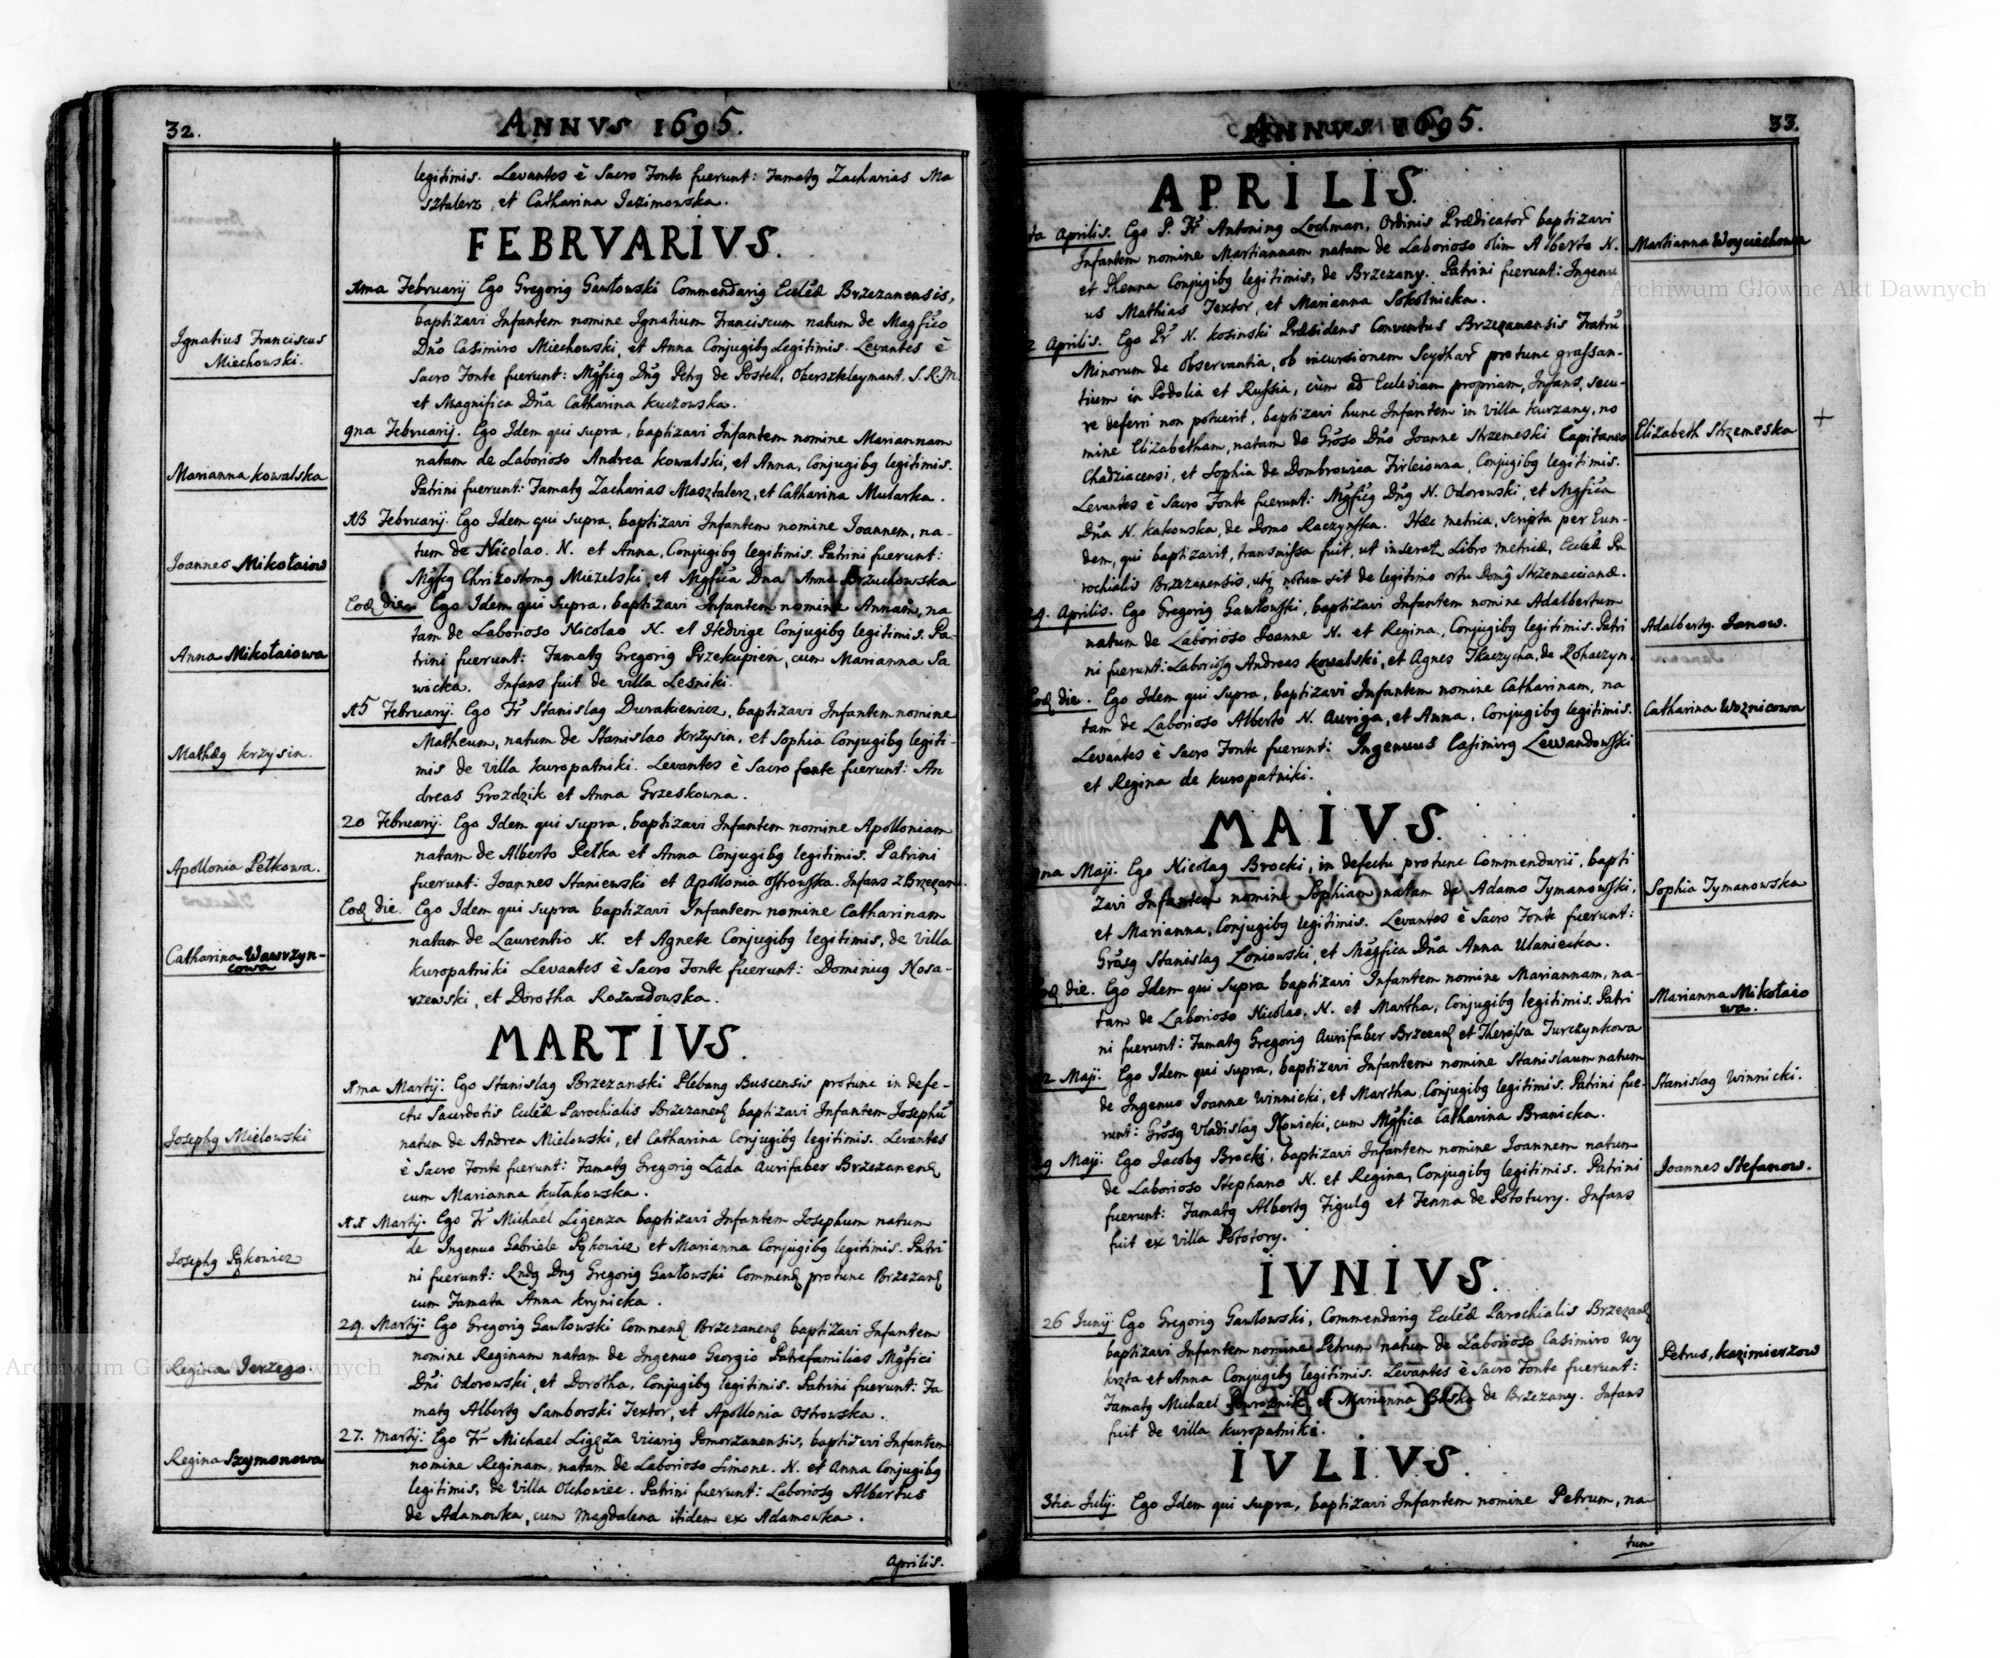 32.
ANNVS 1695.
legitimis. Levantes è Sacro Fonte fuerunt: Famatq Zacharias Ma
sztalerz, et Catharina Jazimowska.
FEBRVARIVS.
1ma Februarij Ego Gregoriq Gawłowski Commendariq Eccléæ Brzezanensis,
baptizavi Infantem nomine Ignatium Franciscum natum de Magfico
Dño Casimiro Miechowski, et Anna Conjugibq Legitimis. Levantes è
Sacro Fonte fuerunt: Mgficq Dnq Petrq de Postell, Obersztleymant, S.R.M.
et Magnifica Dña Catharina Kuczowska.
Ignatius Franciscus
Miechowski.
9na Februarij. Ego Idem qui supra, baptizavi Infantem nomine Mariannam
natam de Laborioso Andrea Kowalski, et Anna, Conjugibq legitimis.
Patrini fuerunt: Famatq Zacharias Masztalerz, et Catharina Mularka.
Marianna Kowalska
13 Februarij. Ego Idem qui supra, baptizavi Infantem nomine Joannem, na-
tum de Nicolao. N. et Anna, Conjugibq legitimis. Patrini fuerunt:
Mgficq Chrizostomq Miezelski, et Mgfica Dna Anna Brzuchowska
Joannes Mikołaiow
Eoд die. Ego Idem qui supra, baptizavi Infantem nomine Annam, na
tam de Laborioso Nicolao N. et Hedvige Conjugibq legitimis. Pa-
trini fuerunt: Famatq Gregoriq Przekupien, cum Marianna Sa
wicka. Infans fuit de villa Lesniki.
Anna Mikołaiowa
15 Februarij. Ego Fr Stanislaq Durakiewicz, baptizavi Infantem nomine
Matheum, natum de Stanislao Krzysin, et Sophia Conjugibq legiti-
mis de villa Kuropatniki. Levantes è Sacro fonte fuerunt: An
dreas Grozdzik et Anna Grzeskowna.
Mathæq Krzysin.
20 Februarij. Ego Idem qui supra, baptizavi Infantem nomine Apolloniam
natam de Alberto Pełka et Anna Conjugibq legitimis. Patrini
fuerunt: Joannes Staniewski et Apollonia Ostrowska. Infans z Brzezan.
Apollonia Pełkowa.
Eoд die. Ego Idem qui supra baptizavi Infantem nomine Catharinam
natam de Laurentio N. et Agnete Conjugibq legitimis, de villa
Kuropatniki Levantes è Sacro Fonte fuerunt: Dominuq Nosa-
rzewski, et Dorotha Rozwadowska.
Catharina Wawrzyn-
cowa
MARTIVS.
1ma Martij: Ego Stanislaq Brzezanski Plebanq Buscensis protunc in defe-
ctu Sacerdotis Eccléæ Parochialis Brzezanenд baptizavi Infantem Josephũ
natum de Andrea Mielowski, et Catharina Conjugibq legitimis. Levantes
è Sacro Fonte fuerunt: Famatq Gregoriq Łada Aurifaber Brzezanenд
cum Marianna Kułakowska.
Josephq Mielowski
11 Martij. Ego Fr Michael Ligenza baptizavi Infantem Josephum natum
de Ingenuo Gabriele Pękowicz et Marianna Conjugibq legitimis. Patri
ni fuerunt: Rndq Dnq Gregoriq Gawłowski Commenд protunc Brzezanд
cum Famata Anna Krynicka.
Josephq Pękowicz
24. Martij: Ego Gregoriq Gawłowski Commenд Brzezanenд baptizavi Infantem
nomine Reginam natam de Ingenuo Georgio Patrefamilias Mgfici
Dñi Odorowski, et Dorotha, Conjugibq legitimis. Patrini fuerunt: Fa
matq Albertq Samborski Textor, et Apollonia Ostrowska.
Regina Jerzego
27. Martij: Ego Fr Michael Ligęza Vicariq Pomorzanensis, baptizavi Infantem
nomine Reginam, natam de Laborioso Simone. N. et Anna Conjugibq
legitimis, de villa Olchowiec. Patrini fuerunt: Laboriosq Albertus
de Adamowka, cum Magdalena itidem ex Adamowka.
Regina Szymonowa
Aprilis.
ANNVS 1695.
33.
APRILIS
ta Aprilis. Ego P. Fr Antoninq Lochman, Ordinis Prædicator baptizavi
Infantem nomine Martiannam natam de Laborioso olim Alberto N.
et Thenna Conjugibq legitimis, de Brzezany. Patrini fuerunt: Ingenu
us Mathias Textor, et Marianna Sokolnicka.
Martianna Woyciechowa
2 Aprilis. Ego Pr N. Kosinski Præsidens Conventus Brzezanensis Fratrũ
Minorum de observantia, ob incursionem Scythar protunc grassan-
tium in Podolia et Russia, cùm ad Ecclesiam propriam, Infans, secu-
re deferri non potuerit, baptizavi hunc Infantem in villa Kurzany, no
mine Elizabetham, natam de Groso Dño Joanne Strzemeski Capitaneo
Chadziacensi, et Sophia de Dombrowica Firleiowna, Conjugibq legitimis.
Levantes è Sacro Fonte fuerunt: Mgficq Dñq N. Odorowski, et Mgfica
Dña N. Kakowska, de Domo Raczynska. Hæc metrica, scripta per Eun-
dem, qui baptizavit, transmissa fuit, ut inserat Libro metricæ, Eccléæ Pa
rochialis Brzezanensis, utq notum sit de legitimo ortu Domq Strzemeccianæ.
Elizabeth Strzemeska +
24. Aprilis. Ego Gregoriq Gawłowski, baptizavi Infantem nomine Adalbertum
natum de Laborioso Joanne N. et Regina, Conjugibq legitimis. Patri
ni fuerunt: Laboriosq Andreas Kowalski, et Agnes Tkaczycha, de Rohaczyn.
Adalbertq. Janow.
Eoд die. Ego Idem qui supra, baptizavi Infantem nomine Catharinam, na
tam de Laborioso Alberto N. Auriga, et Anna, Conjugibq legitimis.
Levantes è Sacro Fonte fuerunt: Ingenuus Casimirq Lewandowski
et Regina de Kuropatniki.
Catharina Woznicowa
MAIVS
na Maji. Ego Nicolaq Brocki, in defectu protunc Commendarii, bapti
zavi Infantem nomine Sophiam natam de Adamo Tymanowski,
et Marianna, Conjugibq legitimis. Levantes è Sacro Fonte fuerunt:
Grosq Stanislaq Łoniowski, et Mgfica Dña Anna Ulaniecka.
Sophia Tymanowska
Eoд die. Ego Idem qui supra baptizavi Infantem nomine Mariannam, na-
tam de Laborioso Nicolao. N. et Martha, Conjugibq legitimis. Patri
ni fuerunt: Famatq Gregoriq Aurifaber Brzezanд et Theressa Turczynkowa
Marianna Mikołaio
wa.
2 Maji. Ego Idem qui supra, baptizavi Infantem nomine Stanislaum natum
de Ingenuo Joanne Winnicki, et Martha, Conjugibq legitimis. Patrini fue-
runt: Grosq Vladislaq Nowicki, cum Mgfica Catharina Branicka.
Stanislaq Winnicki.
9 Maji. Ego Jacobq Brocki, baptizavi Infantem nomine Joannem natum
de Laborioso Stephano N. et Regina, Conjugibq legitimis. Patrini
fuerunt: Famatq Albertq Figulq et Fenna de Potutury. Infans
fuit ex villa Pototory.
Joannes Stefanow.
IVNIVS.
26 Junij Ego Gregoriq Gawłowski, Commendariq Eccléæ Parochialis Brzezanд
baptizavi Infantem nomine Petrum natum de Laborioso Casimiro Wy
krzta et Anna Conjugibq legitimis. Levantes è Sacro Fonte fuerunt:
Famatq Michael Powroznik et Marianna de Brzezany. Infans
fuit de villa Kuropatniki.
Petrus, Kazimierzow
IVLIVS.
3tia Julij. Ego Idem qui supra, baptizavi Infantem nomine Petrum, na
tum
Archiwum Główne Akt Dawnych
Archiwum Główne Akt Dawnych